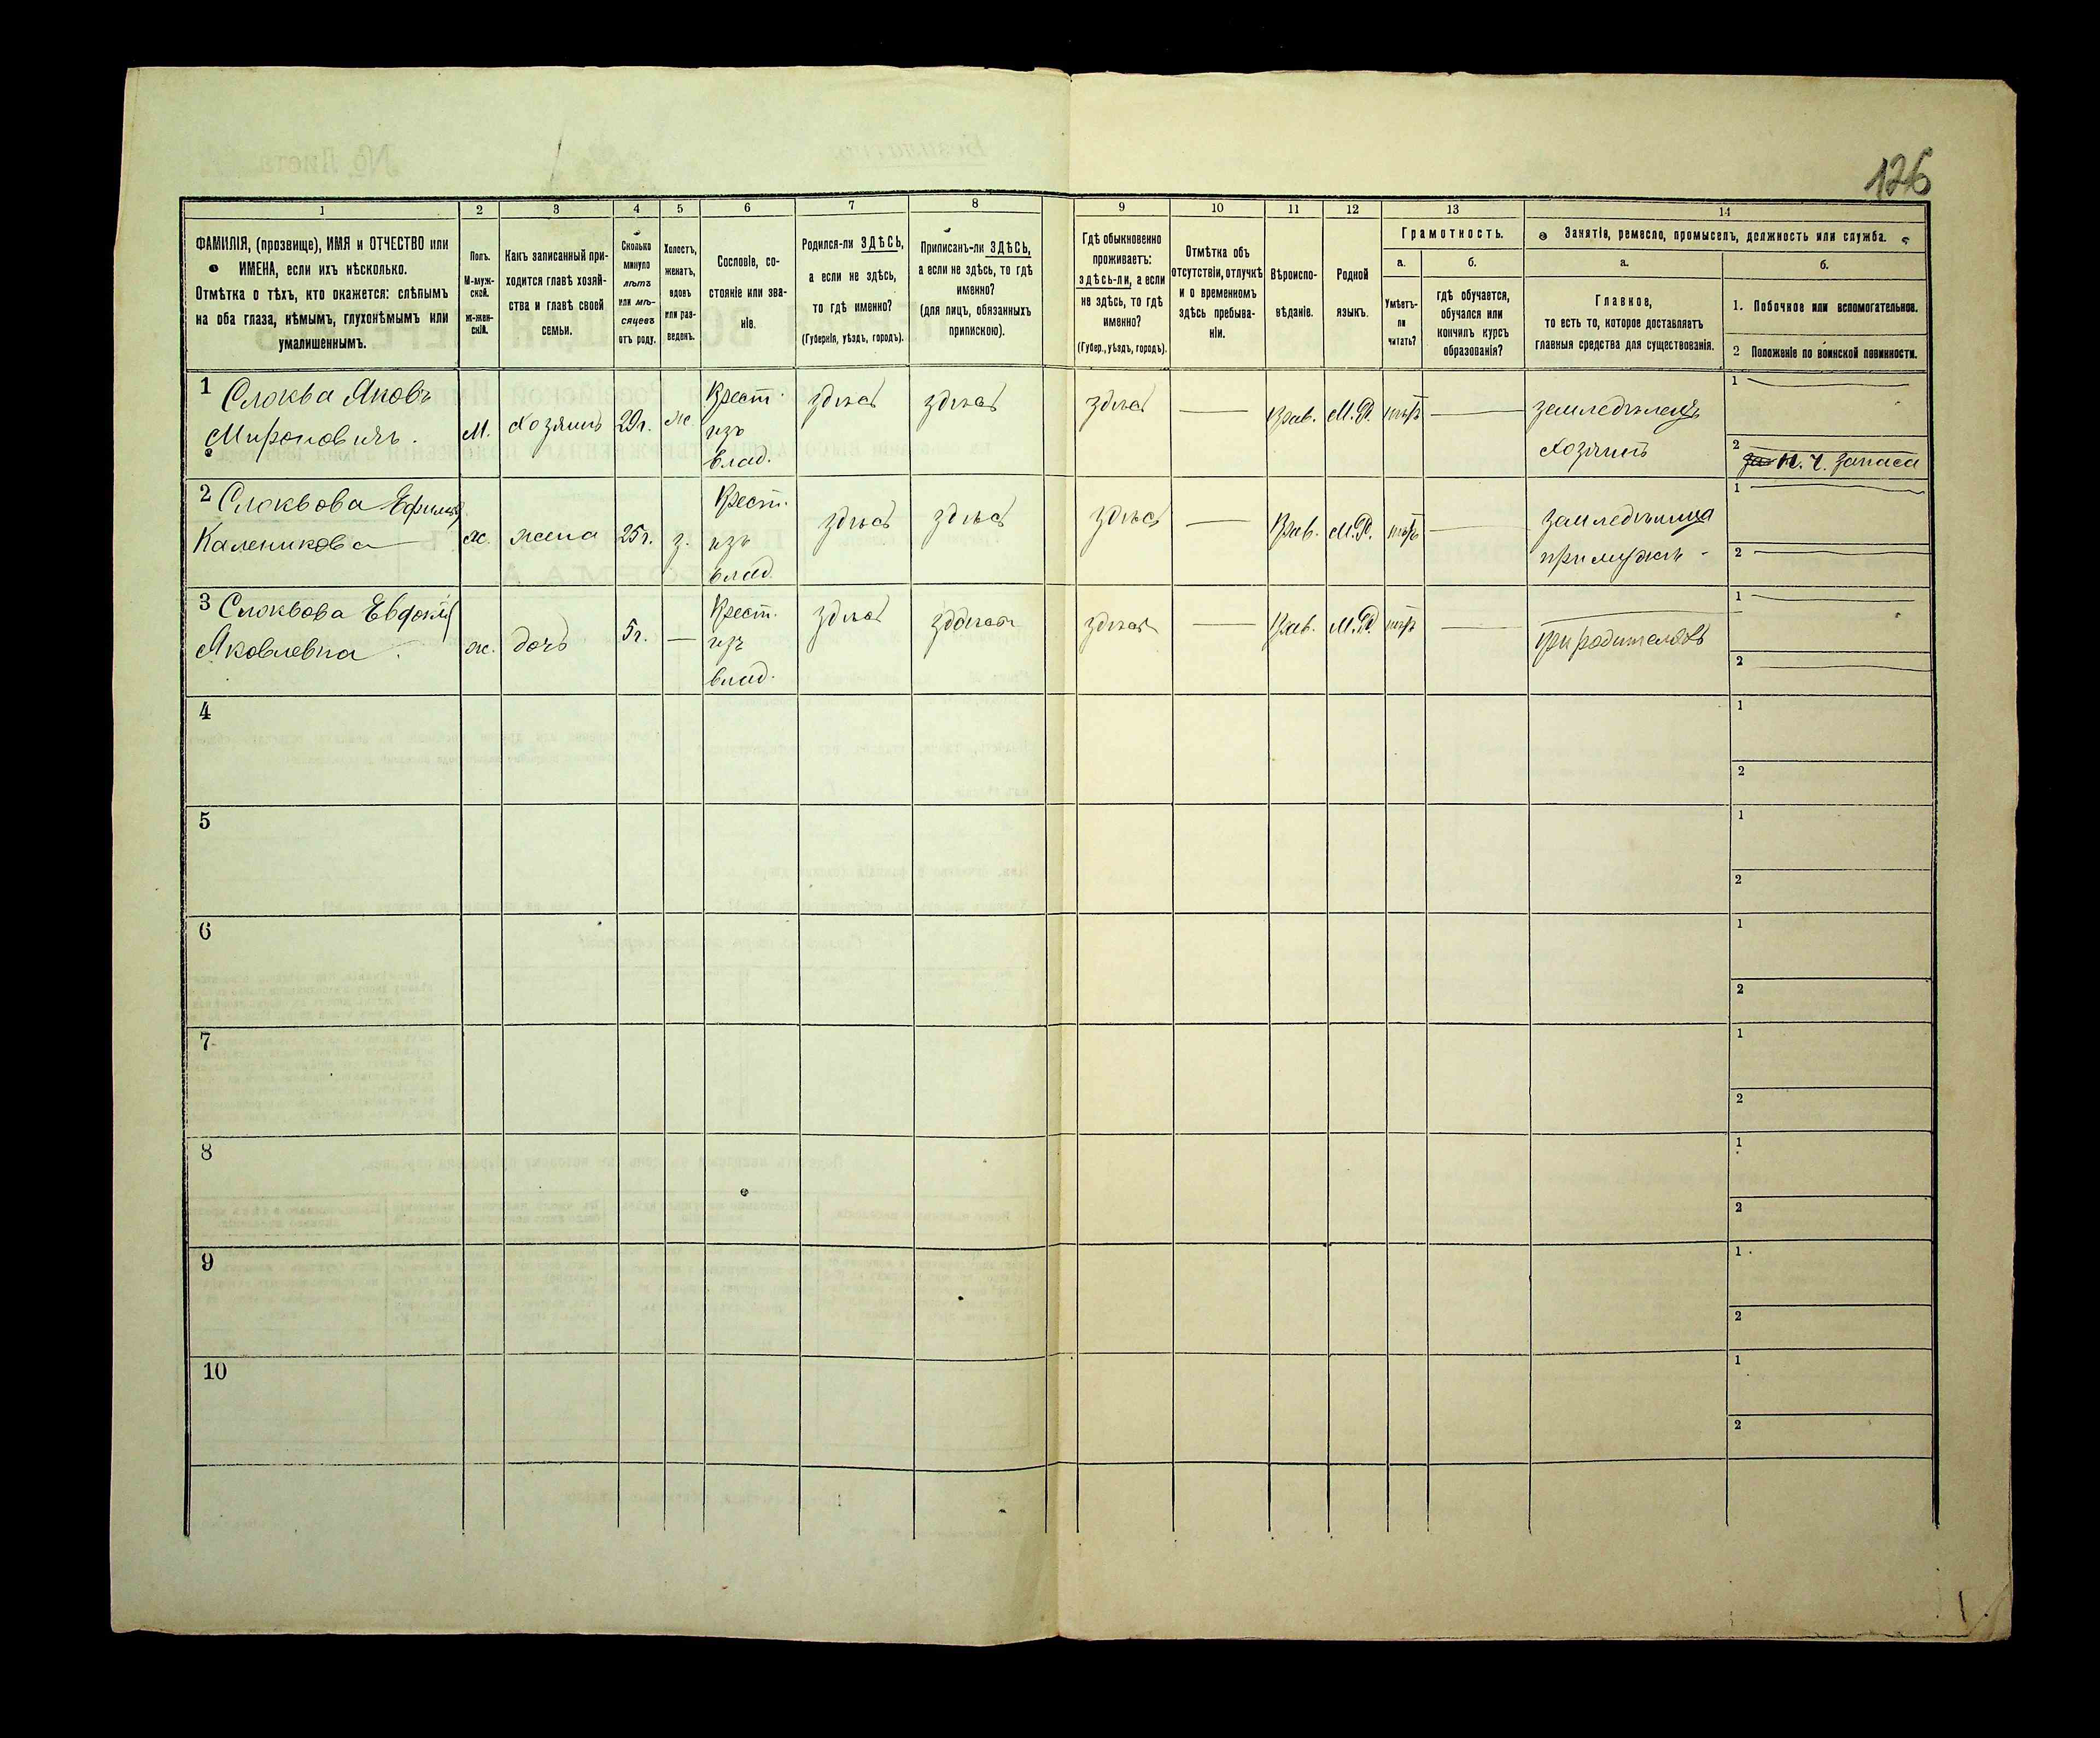 126
1 2 3 4 5 6 7 8 9 10 11 12 13 14
ФАМИЛІЯ, (прозвище), ИМЯ и ОТЧЕСТВО или
ИМЕНА, если ихъ нѣсколько.
Отмѣтка о тѣхъ, кто окажется: слѣпымъ
на оба глаза, нѣмымъ, глухонѣмымъ или
умалишеннымъ.
Полъ.
М-муж-
ской.
Ж-жен-
скій.
Какъ записанный при-
ходится главѣ хозяй-
ства и главѣ своей
семьи.
Сколько
минуло
лѣтъ
или мѣ-
сяцевъ
отъ роду.
Холостъ,
женатъ,
вдовъ
или раз-
веденъ.
Сословіе, со-
стояніе или зва-
ніе.
Родился-ли ЗДѢСЬ,
а если не здѣсь,
то гдѣ именно?
(Губернія, уѣздъ, городъ).
Приписанъ-ли ЗДѢСЬ,
а если не здѣсь, то гдѣ
именно?
(для лицъ, обязанныхъ
припискою).
Гдѣ обыкновенно
проживаетъ:
здѣсь-ли, а если
не здѣсь, то гдѣ
именно?
(Губер., уѣздъ, городъ).
Отмѣтка объ
отсутствіи, отлучкѣ
и о временномъ
здѣсь пребыва-
ніи.
Вѣроиспо-
вѣданіе.
Родной
языкъ.
Грамотность.
а.
Умѣетъ-
ли
читать?
б.
гдѣ обучается,
обучался или
кончилъ курсъ
образованія?
Занятія, ремесло, промыселъ, должность или служба.
а.
Главное,
то есть то, которое доставляетъ
главныя средства для существованія.
б.
1. Побочное или вспомогательное.
2 Положеніе по воинской повинности.
1 Слюква Яковъ
Мироновичъ.
М.
Хозяинъ
29г.
ж.
Крест.
изъ
влад.
здѣсь
здѣсь
здѣсь
Прав.
М.Р.
нѣтъ
земледѣлецъ
хозяинъ
1
2 Н. Ч. запаса
2 Слюквова
Каленикова
ж.
жена
25г.
з.
Крест.
изъ
влад.
здѣсь
здѣсь
здѣсь
Прав.
М.Р.
нѣтъ
при мужѣ
1
2
3 Слюквова Евдокія
Яковлевна
ж.
дочь
5г.
Крест.
изъ
влад.
здѣсь
здѣсь
здѣсь
Прав.
М.Р.
нѣтъ
при родителяхъ
1
2
4
1
2
5
1
2
6
1
2
7
1
2
8
1
2
9
1
2
10
1
2